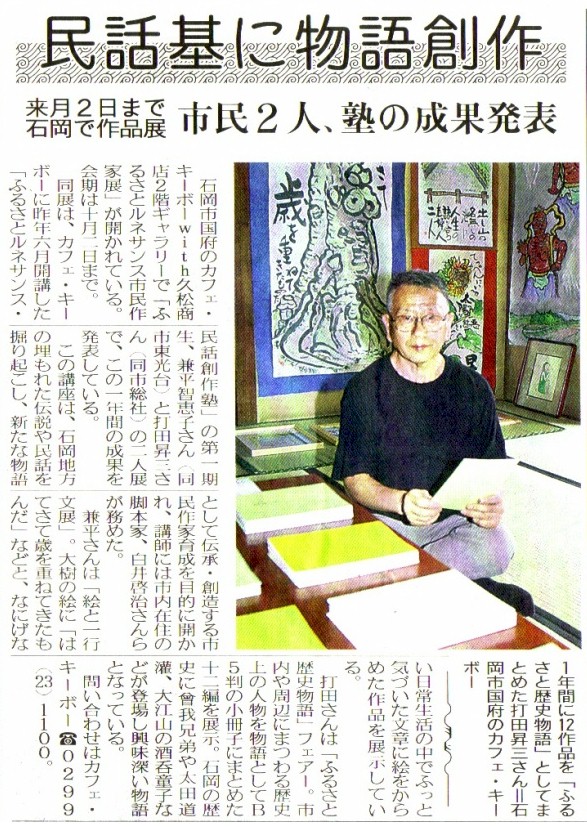 民話基に物語創作
来月２日まで
石岡で作品展
市民２人、塾の成果発表
石岡市国府のカフェ・
キーボｗｉｔｈ久松商
店２階ギャラリーで「ふ
るさとルネサンス市民作
家展」が開かれている。
会期は十月二日まで。
同展は、カフェ・キー
ボーに昨年六月開講した
「ふるさとルネサンス・
民話創作塾」の第一期
生、兼平智恵子さん（同
市東光台）と打田昇三さ
ん（同市総社）の二人展
で、この一年間の成果を
発表している。
この講座は、石岡地方
の埋もれた伝説や民話を
掘り起こし、新たな物語
として伝承、創造する市
民作家育成を目的に開か
れ、講師には市内在住の
脚本家、白井啓治さんら
が務めた。
兼平さんは「絵と一行
文展」。大樹の絵に「は
てさて歳を重ねてきたも
んだ」などと、なにげな
い日常生活の中でふっと
気づいた文章に絵をから
めた作品を展示してい
る。
打田さんは「ふるさと
歴史物語」フェアー。市
内や周辺にまつわる歴史
上の人物を物語としてＢ
５判の小冊子にまとめた
十二編を展示。石岡の歴
史に曾我兄弟や太田道
灌、大江山の酒呑童子な
どが登場し興味深い物語
となっている。
問い合わせはカフェ・
キーボー☎０２９９
（23）１１００。
１年間に12作品を「ふる
さと歴史物語」としてま
とめた打田昇三さん＝石
岡市国府のカフェ・キー
ボー
歳を重ね